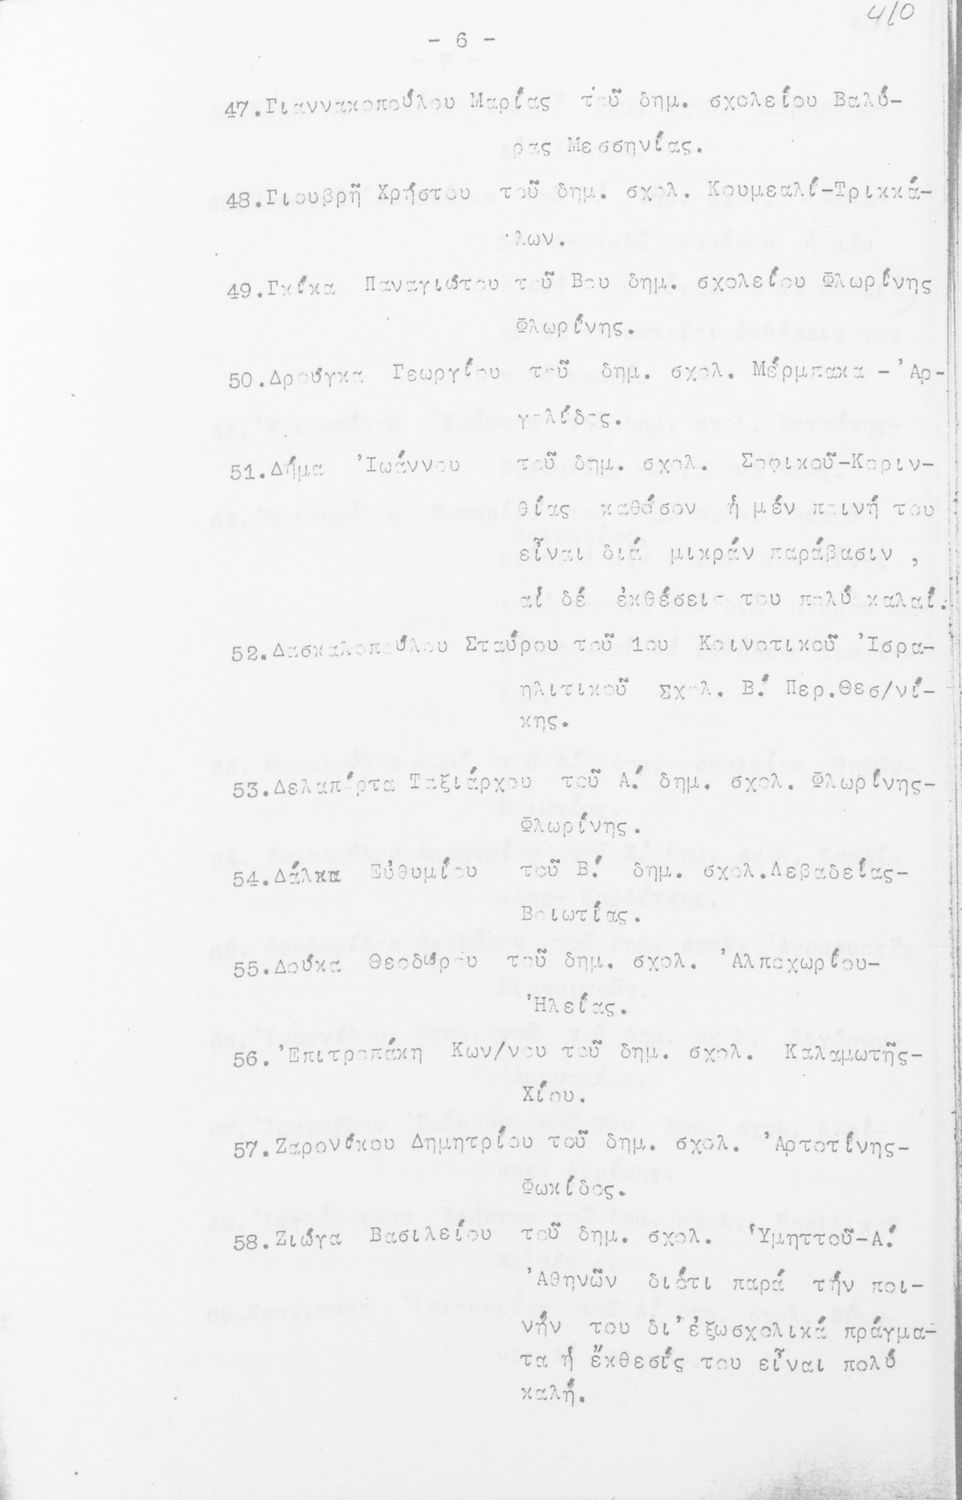 410
- 6 -
47.Γιαννακοπούλου Μαρίας τοῦ δημ. σχολείου Βαλύ-
ρας Μεσσηνίας.
48.Γιουβρῆ Χρήστου τοῦ δημ. σχολ. Κουμεαλί-Τρικκά-
λων.
49.Γκίκα Παναγιώτου τοῦ Βου δημ. σχολείου Φλωρίνης
Φλωρίνης.
50.Δρούγκα Γεωργίου τοῦ δημ. σχολ. Μέρμπακα - 'Αρ-
γολίδος.
51.Δήμα 'Ιωάννου τοῦ δημ. σχολ. Σοφικοῦ-Κοριν-
θίας καθόσον ἡ μέν ποινή του
εἶναι διά μικράν παράβασιν ,
αἱ δέ ἐκθέσεις του πολύ καλαί.
52.Δασκαλοπούλου Σταύρου τοῦ 1ου Κοινοτικοῦ 'Ισρα-
ηλιτικοῦ Σχολ. Β.' Περ.Θεσ/νί-
κης.
53.Δελαπόρτα Ταξιάρχου τοῦ Α.' δημ. σχολ. Φλωρίνης-
Φλωρίνης.
54.Δάλκα Εὐθυμίου τοῦ Β.' δημ. σχολ.Λεβαδείας-
Βοιωτίας.
55.Δούκα Θεοδώρου τοῦ δημ. σχολ. 'Αλποχωρίου-
'Ηλείας.
56.'Επιτροπάκη Κων/νου τοῦ δημ. σχολ. Καλαμωτῆς-
Χίου.
57.Ζαρονίκου Δημητρίου τοῦ δημ. σχολ. 'Αρτοτίνης-
Φωκίδος.
58.Ζιώγα Βασιλείου τοῦ δημ. σχολ. 'Υμηττοῦ-Α.'
'Αθηνῶν διότι παρά τήν ποι-
νήν του δι'ἐξωσχολικά πράγμα-
τα ἡ ἔκθεσίς του εἶναι πολύ
καλή.